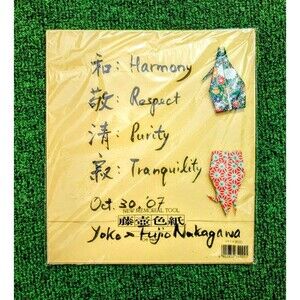 和: Harmony
敬: Respect
清: Purity
寂: Tranquility
Oct. 30, '07
NEW MEMORIAL TOOL
藤壺色紙
Yoko & Fujio Nakagawa